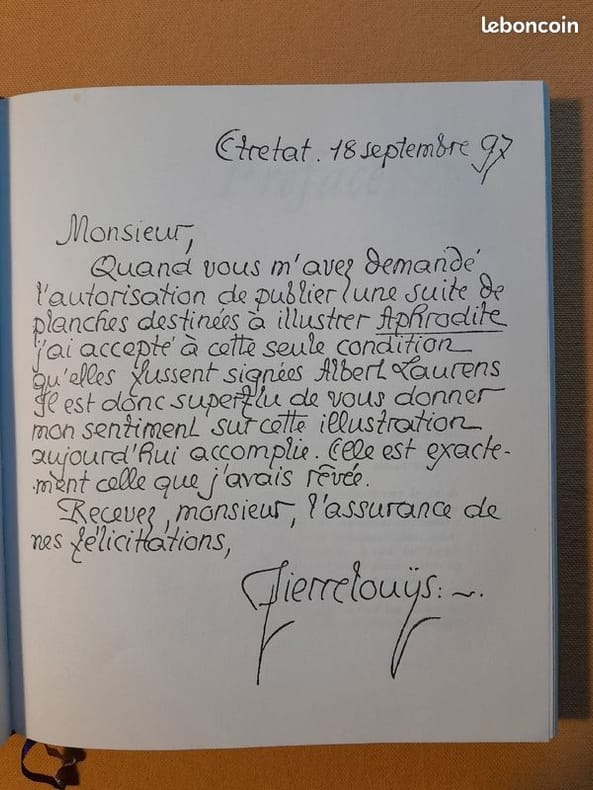 leboncoin
Etretat. 18 septembre 97
Monsieur,
Quand vous m'avez demandé
l'autorisation de publier une suite de
planches destinées à illustrer Aphrodite
j'ai accepté à cette seule condition
qu'elles fussent signées Albert Laurens
Il est donc superflu de vous donner
mon sentiment sur cette illustration
aujourd'hui accomplie. Elle est exacte-
ment celle que j'avais rêvée.
Recevez, monsieur, l'assurance de
mes félicitations,
Pierre Louÿs